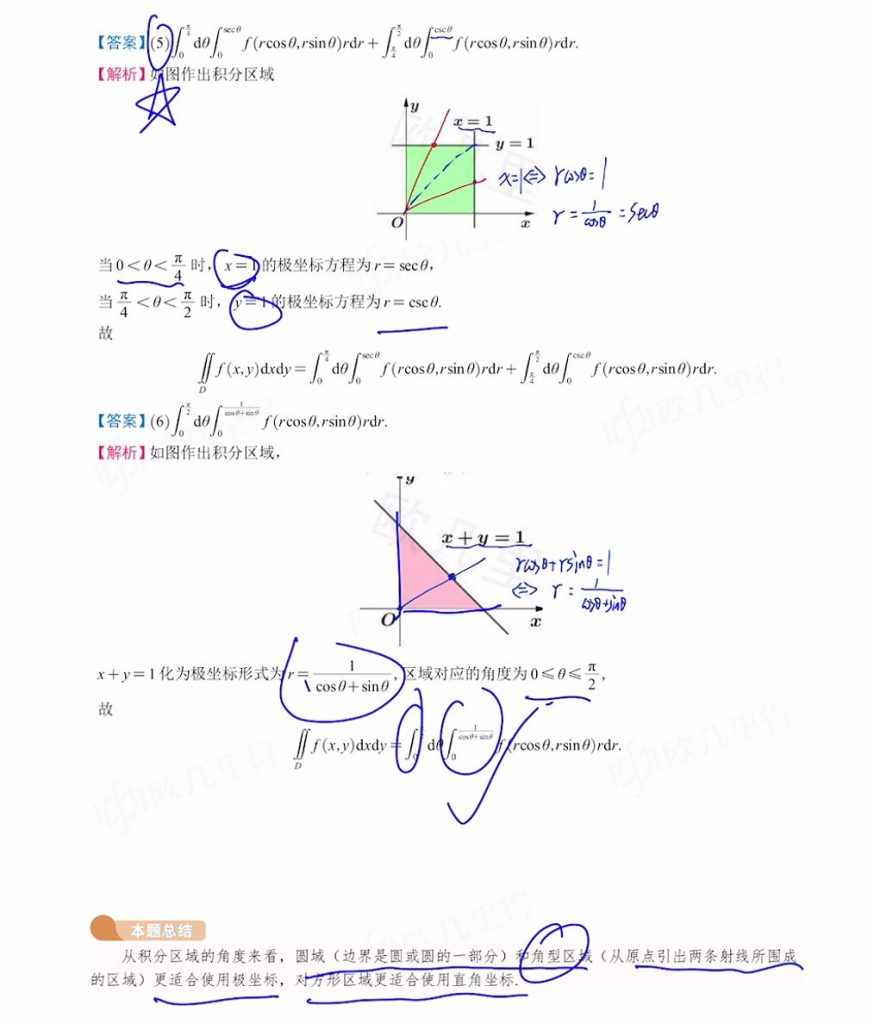 【答案】(5)∫₀^{π/4}dθ∫₀^{secθ}f(rcosθ,rsinθ)rdr+∫_{π/4}^{π/2}dθ∫₀^{cscθ}f(rcosθ,rsinθ)rdr.
【解析】如图作出积分区域
y
x=1
y=1
x=1⇔rcosθ=1
r=1/cosθ=secθ
O x
当0<θ<π/4时,x=1的极坐标方程为r=secθ,
当π/4<θ<π/2时,y=1的极坐标方程为r=cscθ.
故
∬_D f(x,y)dxdy=∫₀^{π/4}dθ∫₀^{secθ}f(rcosθ,rsinθ)rdr+∫_{π/4}^{π/2}dθ∫₀^{cscθ}f(rcosθ,rsinθ)rdr.
【答案】(6)∫₀^{π/2}dθ∫₀^{1/(cosθ+sinθ)}f(rcosθ,rsinθ)rdr.
【解析】如图作出积分区域,
y
x+y=1
rcosθ+rsinθ=1
⇔ r=1/(cosθ+sinθ)
O x
x+y=1化为极坐标形式为r=1/(cosθ+sinθ),区域对应的角度为0≤θ≤π/2,
故
∬_D f(x,y)dxdy=∫₀ dθ∫₀^{1/(cosθ+sinθ)}f(rcosθ,rsinθ)rdr.
本题总结
从积分区域的角度来看,圆域(边界是圆或圆的一部分)和角型区域(从原点引出两条射线所围成
的区域)更适合使用极坐标,对方形区域更适合使用直角坐标.
欧几里得